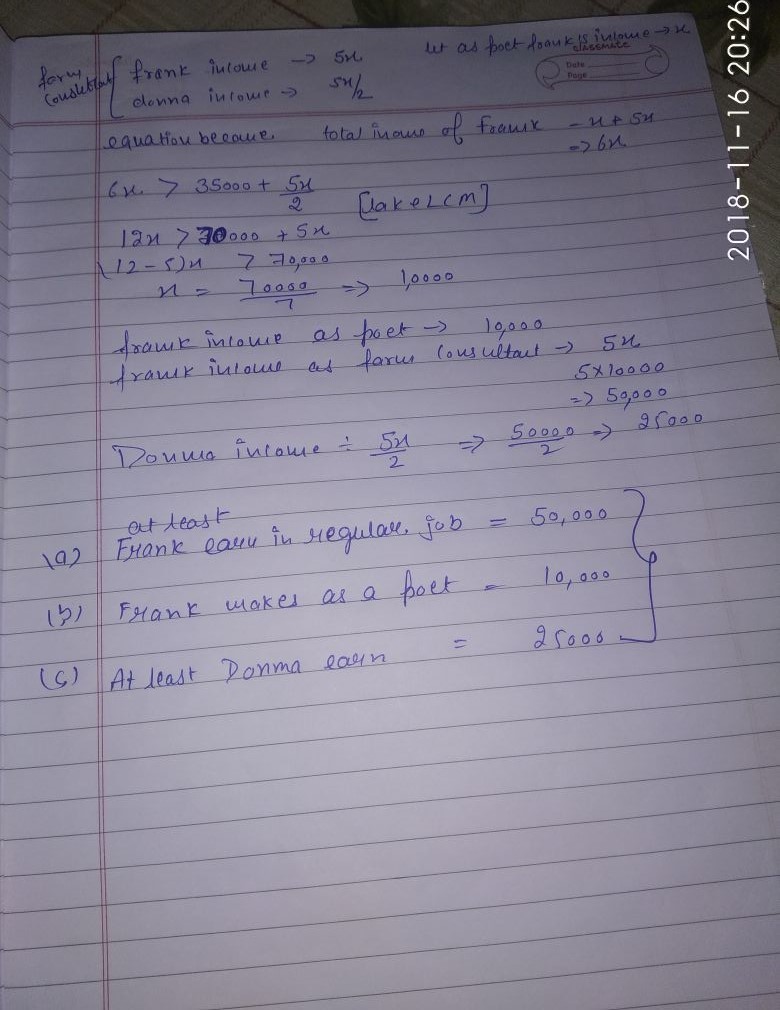 let as poet frank is income → x
classmate
Date
Page
farm consultant
frank income → 5x
donna income → 5x/2
equation became. total income of Frank - x + 5x
=> 6x
6x > 35000 + 5x/2 [take LCM]
12x > 70000 + 5x
(12-5)x > 70,000
x = 70000/7 => 1,0000
frank income as poet → 10,000
frank income as farm consultant → 5x
5×10000
=> 50,000
Donna income ÷ 5x/2 => 50000/2 => 25000
at least
(a) Frank earn in regular job = 50,000
(b) Frank makes as a poet = 10,000
(c) At least Donma earn = 25000
2018-11-16 20:26